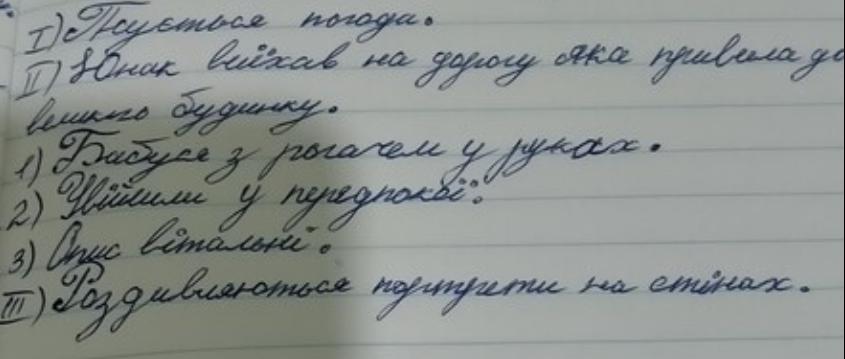 I) Псується погода.
II) Юнак виїхав на дорогу яка привела до
великого будинку.
1) Бабуся з рогачем у руках.
2) Увійшли у передпокої.
3) Опис вітальні.
III) Роздивляються портрети на стінах.